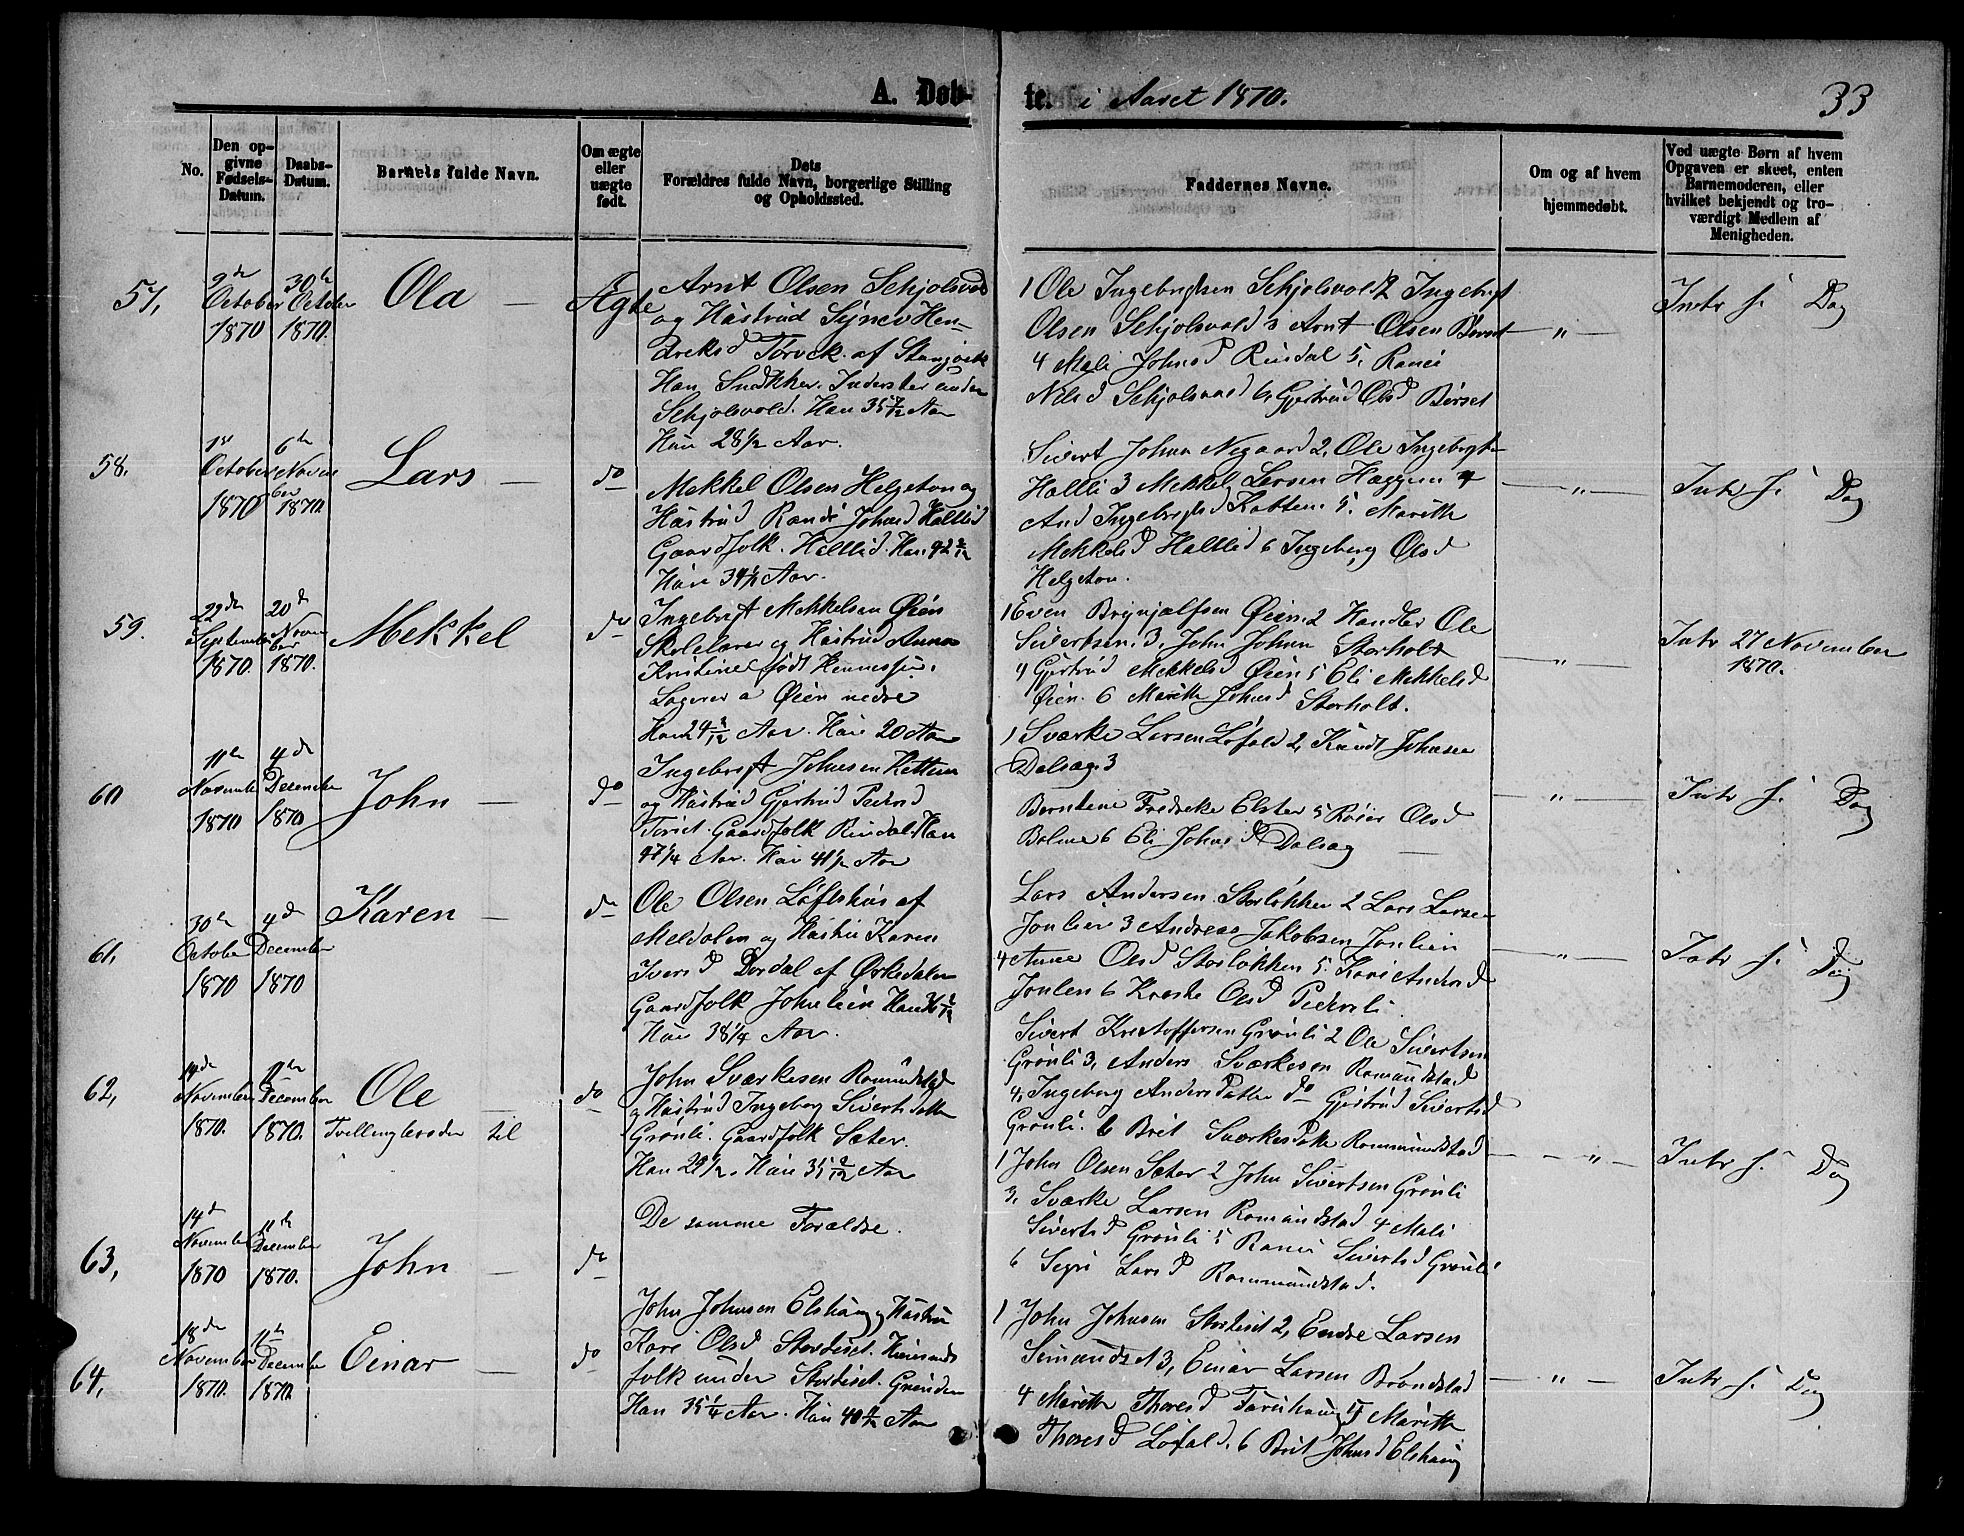 A. Døb-
te. i Aaret 1870.
33
No.
Den op-
givne
Fødsels-
Datum.
Daabs-
Datum.
Barnets fulde Navn.
Om ægte
eller
uægte
født.
Dets
Forældres fulde Navn, borgerlige Stilling
og Opholdssted.
Faddernes Navne.
Om og af hvem
hjemmedøbt.
Ved uægte Børn af hvem
Opgaven er skeet, enten
Barnemoderen, eller
hvilket bekjendt og tro-
værdigt Medlem af
Menigheden.
57,
9de
October
1870
30te
October
1870.
Ola
Ægte
Arnt Olsen Sehjolsvold
og Hustrud Synev Hen-
dreksd Torvek. af Stangvik
Han Snækker. Inderster under
Sehjolsvold. Han 35 Aar
Hun 28 1/2 Aar.
1 Ole Ingebrigtsen Sehjolsvold 2 Ingebrigt
Olsen Sehjolsvold 3 Arnt Olsen Børset
4 Mali Johnsd Rindal 5, Ranei
Nilsd Sehjolsvold 6, Gjertrud Olsd Børset
"
Intr s. Dag
58.
1st
October
1870
6te
Novem
ber
1870.
Lars
do
Mekkel Olsen Helgeton og
Hustrud Randi Johnsd Halllid
Gaardfolk. Halllid. Han 42
Hun 34 Aar.
Sivert Johnsen Negaard 2, Ole Ingebrigts
Haltli 3 Mekkel Larsen Haggen 4
And Ingebrigtsd Kotten 5. Marith
Mekkelsd Halllid 6 Ingeborg Olsd
Helgeton.
"
Intr s. Dag
59.
22de
September
1870.
20de
Novem
ber
1870.
Mekkel
do
Ingebrigt Mekkelsen Øien
Skolelærer og Hustrud Anna
Kristine født
Logerer a Øien nedre
Han 24 Aar. Hun 20 Aar
1 Even Brynjalfsen Øien. 2 Handler Ole
Sivertsen. 3, John Johnsen Storholt
4 Gjertrud Mekkelsd Øien 5 Eli Mekkelsd
Øien. 6 Marith Johnsd Storholt.
"
Intr 27 November
1870.
60
11te
November
1870
4de
December
1870
John
do
Ingebrigt Johnsen Kettem
og Hustrud Gjertrud Pedersd
Toriset. Gaardfolk Rindal. Han
47 1/4 Aar. Hun 41 1/2 Aar
1 Sværke Larsen Løfald 2, Knudt Johnsen
Dalsæg. 3
Berntine Fredreke Elster 5 Roier Olsd
Bolme 6 Eli Johnsd Dalsæg
"
Intr s. Dag
61,
30te
October
1870
4de
December
1870
Karen
do
Ole Olsen Løftshus af
Meldalen og Hustru Karen
Iversd Dordal af Ørkedalen
Gaardfolk Johnlien Han
Hun 38 1/4 Aar.
Lars Andersen Storløkken 2 Lars Larsen
Jonlien 3 Andreas Jakobsen Jonlien
4 Anne Olsd Storløkken 5. Kari Andersd
Jonlien 6 Kreste Olsd Pederli
"
Intr s. Dag
62,
14de
November
1870.
11te
December
1870.
Ole
Tvillingbroder til
do
John Sværkesen Romundstad
og Hustrud Ingeborg Siverts datter
Grønli. Gaardfolk Sæter.
Han 29 1/2. Hun 35 2/12 Aar
Sivert Kristoffersen Grønli 2 Ole Sivertsen
Grønli 3, Anders Sværkesen Romundstad
4, Ingeborg Andersdatter do Gjertrud Sivertsd
Grønli. 6 Brit Sværkesdatter Rommundstad
"
Intr s. Dag
63,
14de
November
1870
11te
December
1870.
John
do
De samme Forældre.
1 John Olsen Sæter 2 John Sivertsen Grønli
3, Sværke Larsen Romundstad 4 Mali
Sivertsd Grønli 5 Ranei Sivertsd Grønli
6 Segri Larsd Rommundstad.
64,
18de
November
1870.
11te
December
1870.
Einar
do
John Johnsen Elshaug og Hustru
Kari Olsd Stortiset. Huusmands
folk under Stortiset. Grinden
Han 35 1/4 Aar. Hun 40 Aar
1 John Johnsen Stortiset 2, Endre Larsen
Simundset 3, Einar Larsen Brøndstad
4 Marith Thoresd Farishaug 5 Marith
Thoresd Løfald. 6 Brit Johnsd Elshaug
"
Intr s. Dag